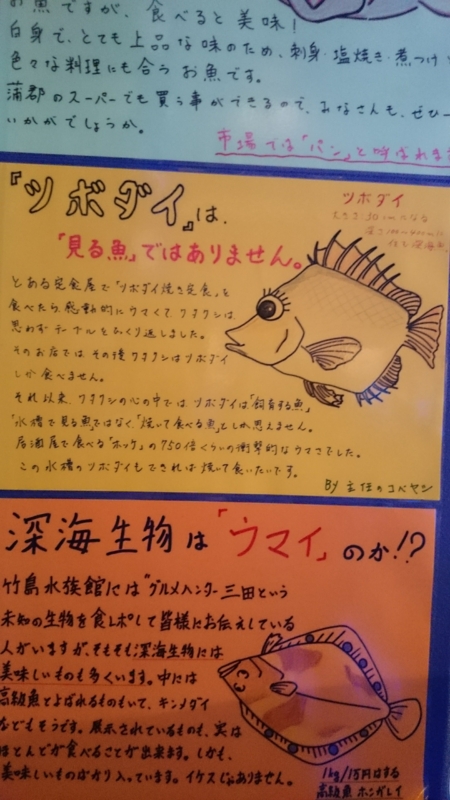 お魚ですが、食べると美味!
白身で、とても上品な味のため、刺身・塩焼き・煮つけ
色々な料理にも合うお魚です。
蒲郡のスーパーでも買う事ができるので、みなさんも、ぜひ一
いかがでしょうか。
市場では「パン」と呼ばれま
『ツボダイ』は、
「見る魚」ではありません。
ツボダイ
大きさ30cmになる
とある定食屋で"ツボダイ焼き定食"を
食べたら感動的にウマくてワタクシは
思わずテーブルをひっくり返しました。
そのお店では、その後ワタクシはツボダイ
しか食べません。
それ以来、ワタクシの心の中では、ツボダイは「飼育する魚」
「水槽で見る魚」ではなく、「焼いて食べる魚」としか思えません。
居酒屋で食べる「ホッケ」の750倍くらいの衝撃的なウマさでした。
この水槽のツボダイもできれば焼いて食いたいです。
By 主任のコバヤシ
深海生物は「ウマイ」のか!?
竹島水族館には"グルメハンター三田という
未知の生物を食レポして皆様にお伝えしている
人がいますが、そもそも深海生物には
美味しいものも多くいます。中には
高級魚とよばれるものもいて、キンメダイ
などもそうです。展示されているものも、実は
ほとんどが食べることが出来ます。しかも、
美味しいものばかり入っています。イケスじゃありません。
1kg/1万円はする
高級魚 ホシガレイ